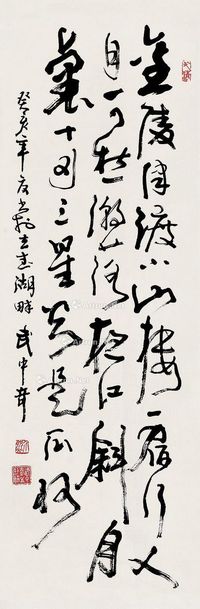 金陵津渡小山楼一宿行人
自可愁潮落夜江斜月
里两三星火是瓜州
癸亥年夏書於玄武湖畔武中奇